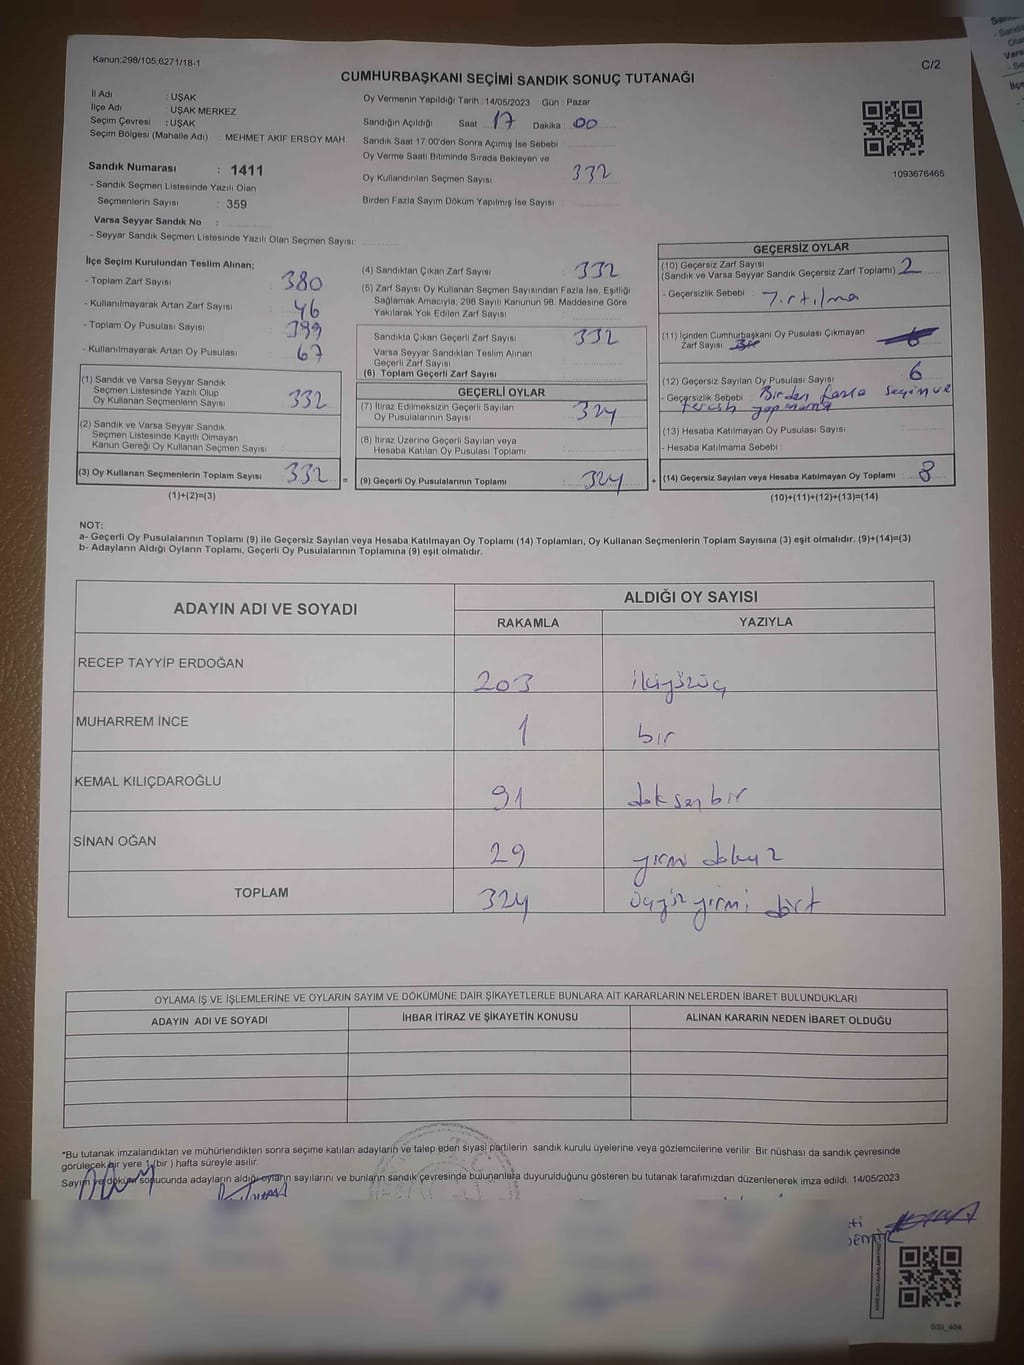 Kanun;298/105;6271/18-1
C/2
CUMHURBAŞKANI SEÇİMİ SANDIK SONUÇ TUTANAĞI
İl Adı : UŞAK
İlçe Adı : UŞAK MERKEZ
Seçim Çevresi : UŞAK
Seçim Bölgesi (Mahalle Adı) : MEHMET AKİF ERSOY MAH.
Sandık Numarası : 1411
- Sandık Seçmen Listesinde Yazılı Olan
Seçmenlerin Sayısı : 359
Varsa Seyyar Sandık No :
- Seyyar Sandık Seçmen Listesinde Yazılı Olan Seçmen Sayısı:
Oy Vermenin Yapıldığı Tarih : 14/05/2023 Gün : Pazar
Sandığın Açıldığı Saat 17 Dakika 00
Sandık Saat 17:00'den Sonra Açımış İse Sebebi
Oy Verme Saati Bitiminde Sırada Bekleyen ve
Oy Kullandırılan Seçmen Sayısı 332
Birden Fazla Sayım Döküm Yapılmış İse Sayısı
1093676465
İlçe Seçim Kurulundan Teslim Alınan;
- Toplam Zarf Sayısı : 380
- Kullanılmayarak Artan Zarf Sayısı : 46
- Toplam Oy Pusulası Sayısı : 399
- Kullanılmayarak Artan Oy Pusulası : 67
(1) Sandık ve Varsa Seyyar Sandık
Seçmen Listesinde Yazılı Olup
Oy Kullanan Seçmenlerin Sayısı : 332
(2) Sandık ve Varsa Seyyar Sandık
Seçmen Listesinde Kayıtlı Olmayan
Kanun Gereği Oy Kullanan Seçmen Sayısı :
(3) Oy Kullanan Seçmenlerin Toplam Sayısı : 332 =
(1)+(2)=(3)
(4) Sandıktan Çıkan Zarf Sayısı : 332
(5) Zarf Sayısı Oy Kullanan Seçmen Sayısından Fazla İse, Eşitliği
Sağlamak Amacıyla; 298 Sayılı Kanunun 98. Maddesine Göre
Yakılarak Yok Edilen Zarf Sayısı :
Sandıkta Çıkan Geçerli Zarf Sayısı : 332
Varsa Seyyar Sandıktan Teslim Alınan
Geçerli Zarf Sayısı
(6) Toplam Geçerli Zarf Sayısı
GEÇERLİ OYLAR
(7) İtiraz Edilmeksizin Geçerli Sayılan
Oy Pusulalarının Sayısı : 324
(8) İtiraz Üzerine Geçerli Sayılan veya
Hesaba Katılan Oy Pusulası Toplamı :
(9) Geçerli Oy Pusulalarının Toplamı : 324 +
GEÇERSİZ OYLAR
(10) Geçersiz Zarf Sayısı
(Sandık ve Varsa Seyyar Sandık Geçersiz Zarf Toplamı) 2
- Geçersizlik Sebebi : Yırtılma
(11) İçinden Cumhurbaşkanı Oy Pusulası Çıkmayan
Zarf Sayısı
(12) Geçersiz Sayılan Oy Pusulası Sayısı : 6
- Geçersizlik Sebebi Birden fazla seçim ve
tercih yapması
(13) Hesaba Katılmayan Oy Pusulası Sayısı :
- Hesaba Katılmama Sebebi :
(14) Geçersiz Sayılan veya Hesaba Katılmayan Oy Toplamı : 8
(10)+(11)+(12)+(13)=(14)
NOT:
a- Geçerli Oy Pusulalarının Toplamı (9) ile Geçersiz Sayılan veya Hesaba Katılmayan Oy Toplamı (14) Toplamları, Oy Kullanan Seçmenlerin Toplam Sayısına (3) eşit olmalıdır. (9)+(14)=(3)
b- Adayların Aldığı Oyların Toplamı, Geçerli Oy Pusulalarının Toplamına (9) eşit olmalıdır.
ADAYIN ADI VE SOYADI ALDIĞI OY SAYISI
RAKAMLA YAZIYLA
RECEP TAYYİP ERDOĞAN 203 ikiyüzüç
MUHARREM İNCE 1 bir
KEMAL KILIÇDAROĞLU 91 doksanbir
SİNAN OĞAN 29 yirmi dokuz
TOPLAM 324 üçyüz yirmi dört
OYLAMA İŞ VE İŞLEMLERİNE VE OYLARIN SAYIM VE DÖKÜMÜNE DAİR ŞİKAYETLERLE BUNLARA AİT KARARLARIN NELERDEN İBARET BULUNDUKLARI
ADAYIN ADI VE SOYADI İHBAR İTİRAZ VE ŞİKAYETİN KONUSU ALINAN KARARIN NEDEN İBARET OLDUĞU
*Bu tutanak imzalandıktan ve mühürlendikten sonra seçime katılan adayların ve talep eden siyasi partilerin sandık kurulu üyelerine veya gözlemcilerine verilir. Bir nüshası da sandık çevresinde
görülecek bir yere 1 (bir ) hafta süreyle asılır.
Sayım ve döküm sonucunda adayların aldığı oyların sayılarını ve bunların sandık çevresinde bulunanlara duyurulduğunu gösteren bu tutanak tarafımızdan düzenlenerek imza edildi. 14/05/2023